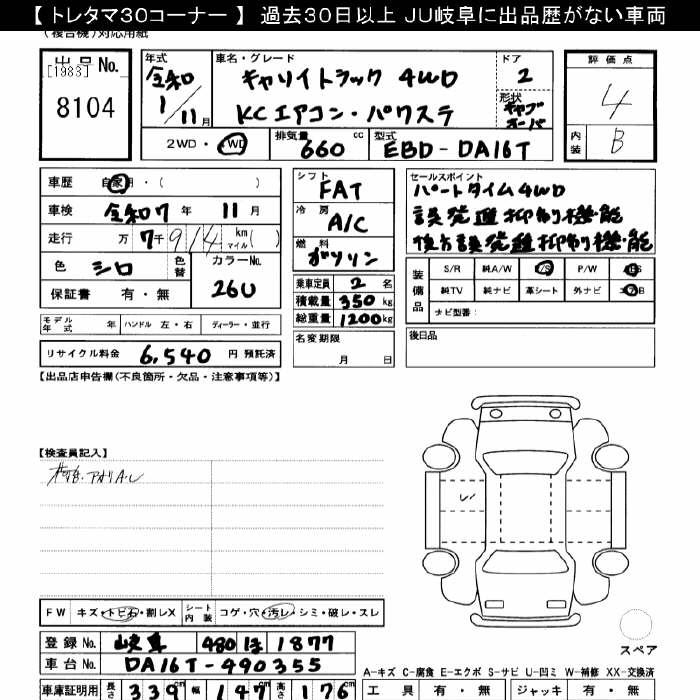 【トレタマ30コーナー】過去30日以上 JU岐阜に出品歴がない車両
(複合機)対応用紙
出品No.
[1983]
8104
年式
令和
1/11月
車名・グレード
キャリイトラック 4WD
KCエアコン・パワステ
ドア
2
形状
評価点
4
内装
B
2WD・4WD
排気量
660 cc
型式
EBD-DA16T
車歴
自家用・( )
車検
令和7年 11月
走行
万 7千914 km マイル( )
色
シロ
色替
カラーNo.
26U
保証書 有・無
シフト
FAT
冷房
A/C
燃料
ガソリン
乗車定員 2名
積載量 350kg
総重量 1200kg
セールスポイント
パートタイム4WD
誤発進抑制機能
後方誤発進抑制機能
装備品
S/R 純A/W P/S P/W
純TV 純ナビ 革シート 外ナビ
ナビ型番:
モデル年式 年 ハンドル 左・右 ディーラー・並行
リサイクル料金 6,540 円 預託済
名変期限
月 日
後日品
【出品店申告欄(不良箇所・欠品・注意事項等)】
【検査員記入】
FW キズ・トビ石・割レX
シート内装 コゲ・穴・汚レ・シミ・破レ・スレ
スペア
登録No. 岐阜 480 ほ 1877
車台No. DA16T-490355
A-キズ C-腐食 E-エクボ S-サビ U-凹ミ W-補修 XX-交換済
車庫証明用 長さ 339cm 幅 147cm 高さ 176cm
工具 有・無 ジャッキ 有・無